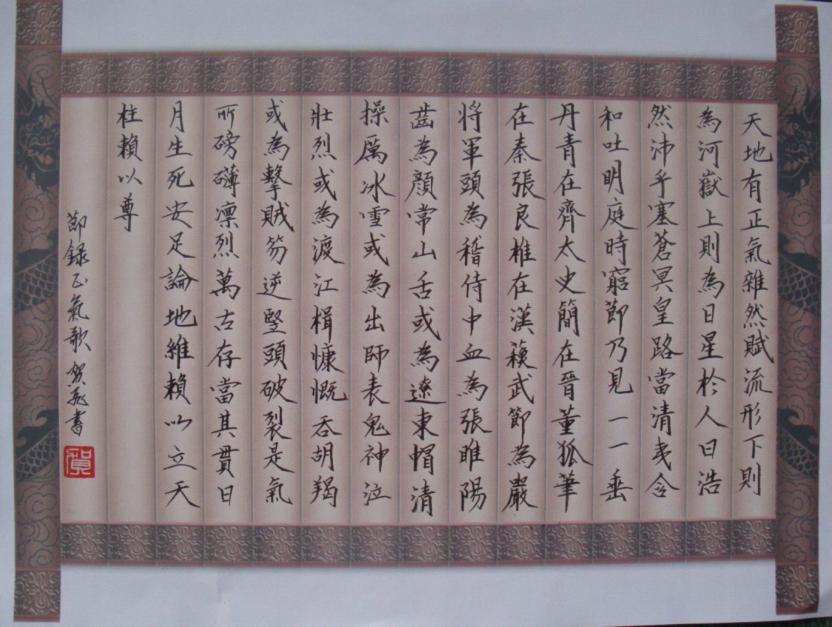 天地有正氣雜然賦流形下則
為河嶽上則為日星於人曰浩
然沛乎塞蒼冥皇路當清夷含
和吐明庭時窮節乃見一一垂
丹青在齊太史簡在晉董狐筆
在秦張良椎在漢蘇武節為嚴
將軍頭為嵇侍中血為張睢陽
齒為顏常山舌或為遼東帽清
操厲冰雪或為出師表鬼神泣
壯烈或為渡江楫慷慨吞胡羯
或為擊賊笏逆豎頭破裂是氣
所磅礴凜烈萬古存當其貫日
月生死安足論地維賴以立天
柱賴以尊
節錄正氣歌 賀飛書
賀